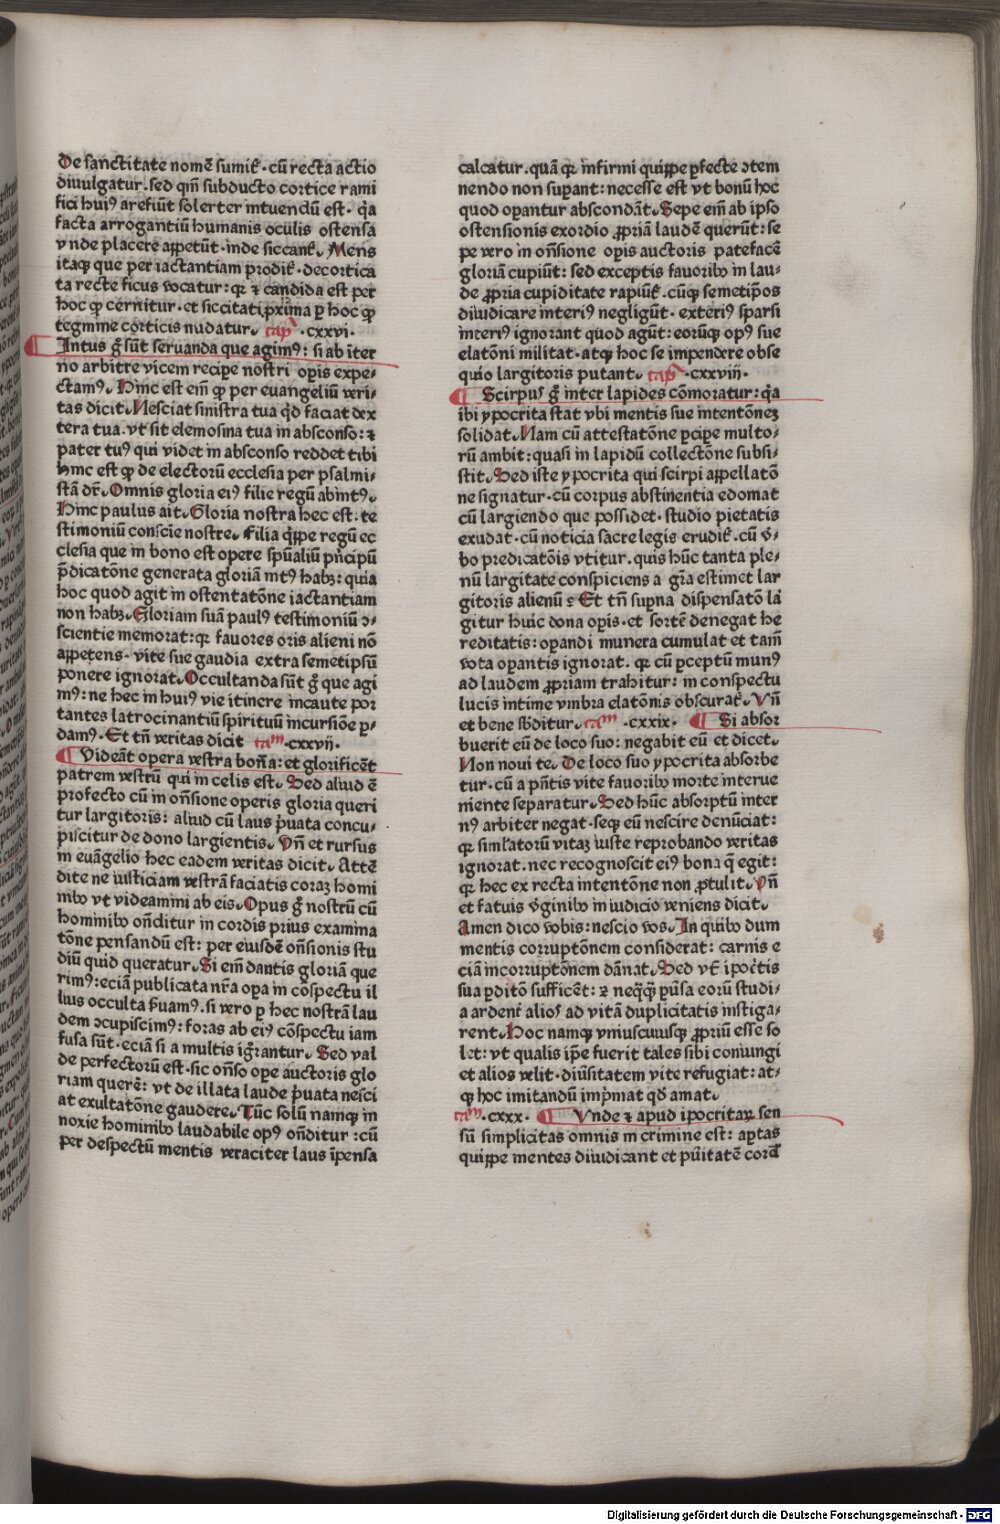 De sanctitate nomē sumit̄ · cū recta actio
diuulgatur . sed qm̄ subducto cortice rami
fici huiꝰ arefiūt solerter intuendū est · q̄a
facta arrogantiū humanis oculis ostensa
vnde placere appetūt · inde siccant̄ . Mens
itaqꝫ que per iactantiam prodit̄ · decortica
ta recte ficus vocatur : qꝛ ⁊ candida est per
hoc qp̄ cernitur · et siccitati p̱xima p̱ hoc qp̄
tegmine corticis nudatur . cap̄ · cxxvi ·
Intus g̊ sūt seruanda que agimꝰ : si ab īter
no arbitre vicem recipe nostri op̱is expe⸗
ctamꝰ . Hinc est em̄ qp̄ per euangeliū veri⸗
tas dicit . Nesciat sinistra tua q̄d faciat dex
tera tua . vt sit elemosina tua in absconso : ⁊
pater tuꝰ qui videt in absconso reddet tibi
Hinc est qp̄ de electorū ecclesia per psalmi⸗
stā dr̄ . Omnis gloria eiꝰ filie regū abintꝰ .
Hinc paulus ait . Gloria nostra hec est : te
stimoniū consciēnostre . Filia q̄ppe regū ec
clesia que in bono est opere spūaliū pn̄cipū
p̄dicatōne generata gloriā intꝰ habꝫ : quia
hoc quod agit in ostentatōne iactantiam
non habꝫ . Gloriam suā paulꝰ testimoniū ↄ⸗
scientie memorat : qꝛ fauores oris alieni nō
appetens · vite sue gaudia extra semetipsū
ponere ignorat . Occultanda sūt g̊ que agi
mꝰ : ne hec in huiꝰ vie itinere incaute por
tantes latrocinantiū spirituū incursiōe p̱⸗
damꝰ . Et tn̄ veritas dicit cam̄ · cxxvij ·
Videāt opera vestra bona : et glorificēt
patrem vestrū qui in celis est . Sed aliud ē
profecto cū in on̄sione operis gloria queri
tur largitoris : aliud cū laus p̄uata concu⸗
piscitur de dono largientis . Vn̄ et rursus
in euāgelio hec eadem veritas dicit . Attē
dite ne iusticiam vestrā faciatis coraꝫ homi
nibꝰ vt videamini ab eis . Opus g̊ nostrū cū
hominibꝰ on̄ditur in cordis prius examina
tōne pensandū est : per eiusdē on̄sionis stu
diū quid queratur . Si em̄ dantis gloriā que
rimꝰ : eciā publicata nr̄a op̱a in cōspectu il
lius occulta s̄uamꝰ . si vero p̱ hec nostrā lau
dem ↄcupiscimꝰ : foras ab eiꝰ cōspectu iam
fusa sūt · eciā si a multis ig̊rantur . Sed val
de perfectorū est · sic on̄so ope auctoris glo
riam querē : vt de illata laude p̄uata nesci
at exultatōne gaudere . Tūc solū namqꝫ in
noxie hominibꝰ laudabile opꝰ on̄ditur : cū
per despectū mentis veraciter laus īpensa
calcatur . quā qꝛ infirmi quippe p̱fecte ↄtem
nendo non supant : necesse est vt bonū hoc
quod op̱antur abscondāt . Sepe em̄ ab ipso
ostensionis exordio p̱priā laudē querūt : se
pe vero in on̄sione op̱is auctoris patefacē
gloriā cupiūt : sed exceptis fauoribꝰ in lau⸗
de p̱pria cupiditate rapiūt̄ . cūqꝫ semetip̄os
diiudicare interiꝰ negligūt · exteriꝰ sparsi
interiꝰ ignorant quod agūt : eorūqꝫ opꝰ sue
elatōni militat · atqꝫ hoc se impendere obse
quio largitoris putant . cap̄ · cxxviij ·
Scirpuſ g̊ inter lapides cōmoratur : q̄a
ibi ypocrita stat vbi mentis sue intentōneꝫ
solidat . Nam cū attestatōne p̱cipe multo⸗
rū ambit : quasi in lapidū collectōne subsi⸗
stit . Sed iste ypocrita qui scirpi appellatō
ne signatur · cū corpus abstinentia edomat
cū largiendo que possidet · studio pietatis
exudat · cū noticia sacre legis erudit̄ . cū v̄⸗
bo predicatōis vtitur . quis hūc tanta ple⸗
nū largitate conspiciens a gr̄a estimet lar
gitoris alienū ? Et tn̄ sup̱na dispensatō lar
gitur huic dona op̱is · et sortē denegat he
reditatis : op̱andi munera cumulat et tam̄
vota op̱antis ignorat . qꝛ cū p̱ceptū munꝰ
ad laudem p̱priam trahitur : in conspectu
lucis intime vmbra elatōnis obscurat̄ . Vn̄
et bene sb̄ditur . cam̄ · cxxix · Si absor
buerit eū de loco suo : negabit eū et dicet .
Non noui te . De loco suo ypocrita absorbe
tur · cū a pn̄tis vite fauoribꝰ morte interue
niente separatur . Sed hūc absorptū inter
nꝰ arbiter negat · seqꝫ eū nescire denūciat :
qꝛ siml̄atorū vitaꝫ iuste reprobando veritas
ignorat . nec recognoscit eiꝰ bona q̄ egit :
qꝛ hec ex recta intentōne non p̱tulit . Vn̄
et fatuis v̄ginibꝰ in iudicio veniens dicit .
Amen dico vobis : nescio vos . In quibꝰ dum
mentis corruptōnem considerat : carnis e
ciā incorruptōnem dānat . Sed vt̄ ipoc̄tis
sua p̱ditō sufficēt : ⁊ neq̄q̄ p̱uīsa eorū studi⸗
a ardent̄ alioſ ad vitā duplicitatis instiga⸗
rent . Hoc namqꝫ vniuscuiusqꝫ p̱priū esse so
let : vt qualis ip̄e fuerit tales sibi coniungi
et alios velit · diūsitatem vite refugiat : at⸗
qꝫ hoc imitandū imp̱mat qd̄ amat .
cam̄ · cxxx · Vnde ⁊ apud ipocritaꝝ sen
sū simplicitas omnis in crimine est : ap̱tas
quippe mentes diiudicant et pūitatē cord̄
Digitalisierung gefördert durch die Deutsche Forschungsgemeinschaft - DFG